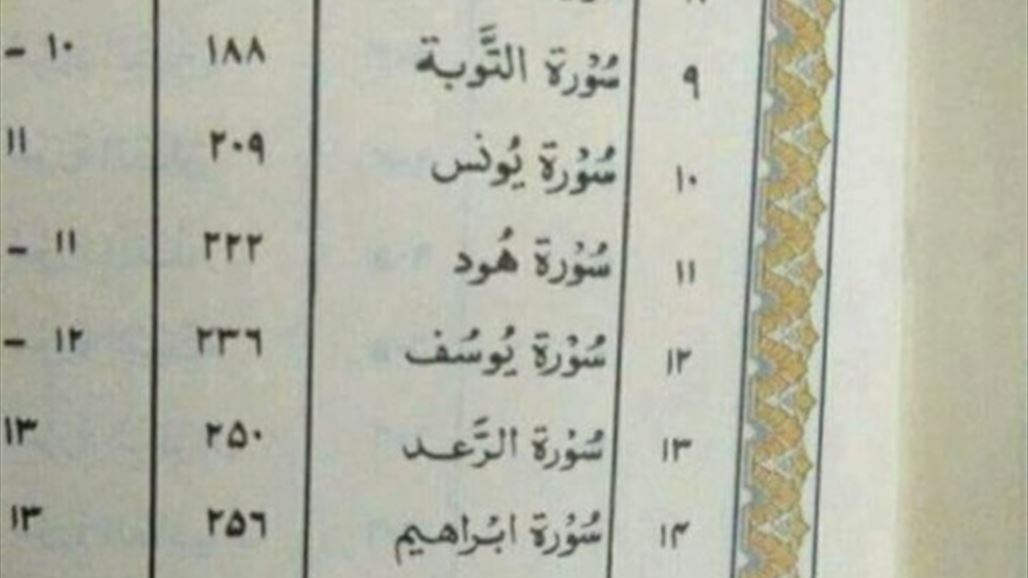 ٩ سُوْرَة التَّوبة ١٨٨ ١٠ -
١٠ سُوْرَة يُونس ٢٠٩ ١١
١١ سُوْرَة هُود ٢٢٢ ١١ -
١٢ سُوْرَة يُوسُف ٢٣٦ ١٢ -
١٣ سُوْرَة الرَّعد ٢٥٠ ١٣
١۴ سُوْرَة ابْراهيم ٢٥٦ ١٣